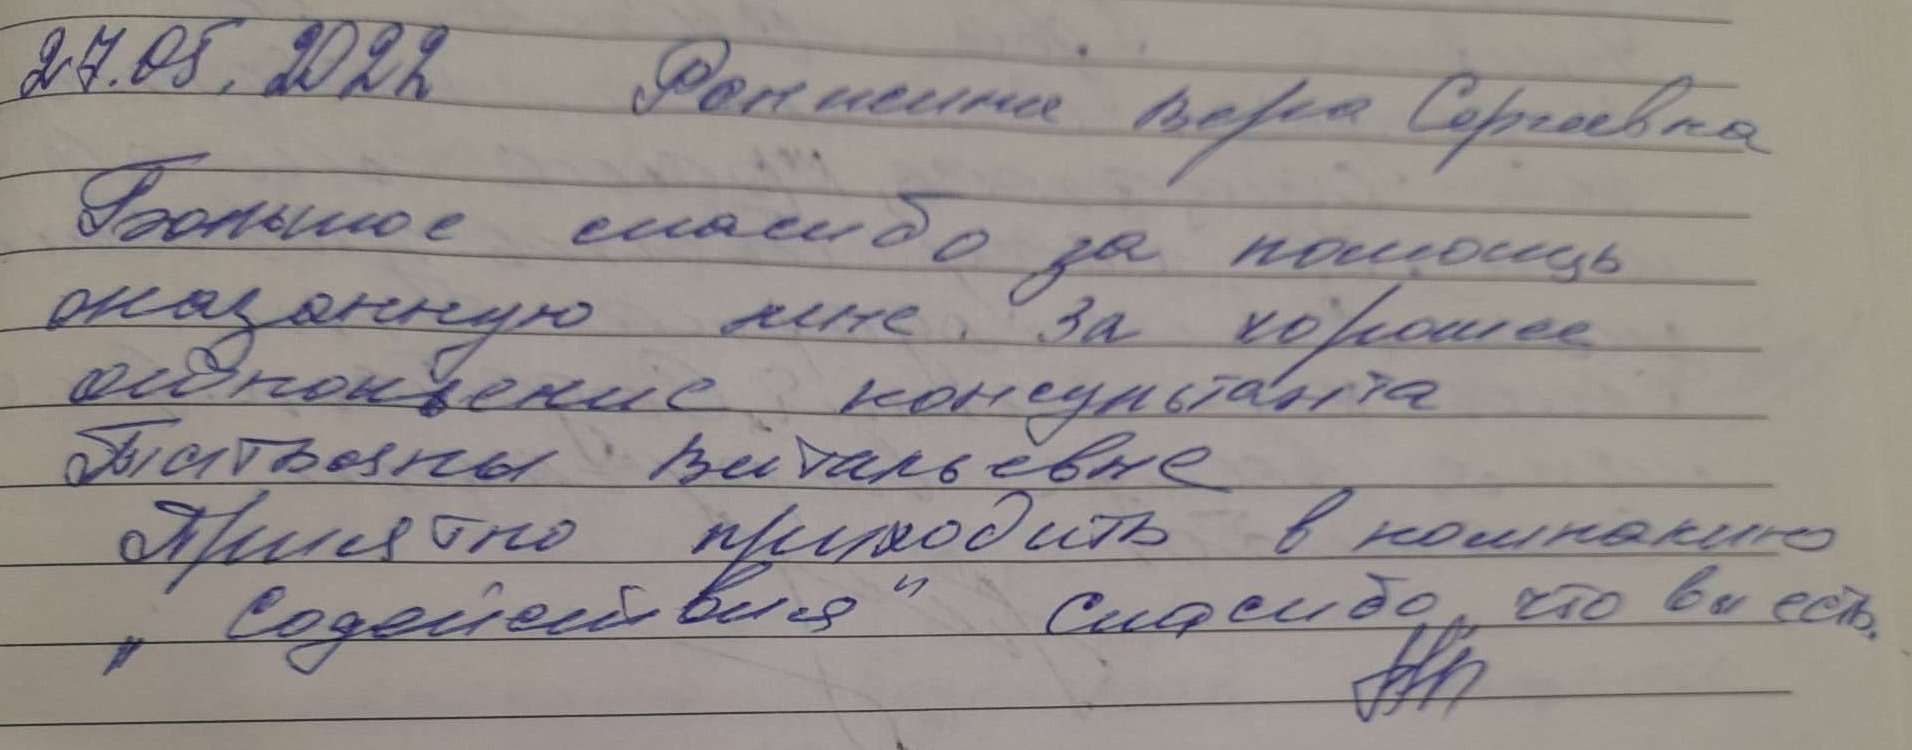 27.05.2022 Вера Сергеевна
Большое спасибо за помощь
оказанную мне. За хорошее
консультанта
Татьяны Витальевне
Приятно приходить в компанию
„Содействия" Спасибо, что вы есть.